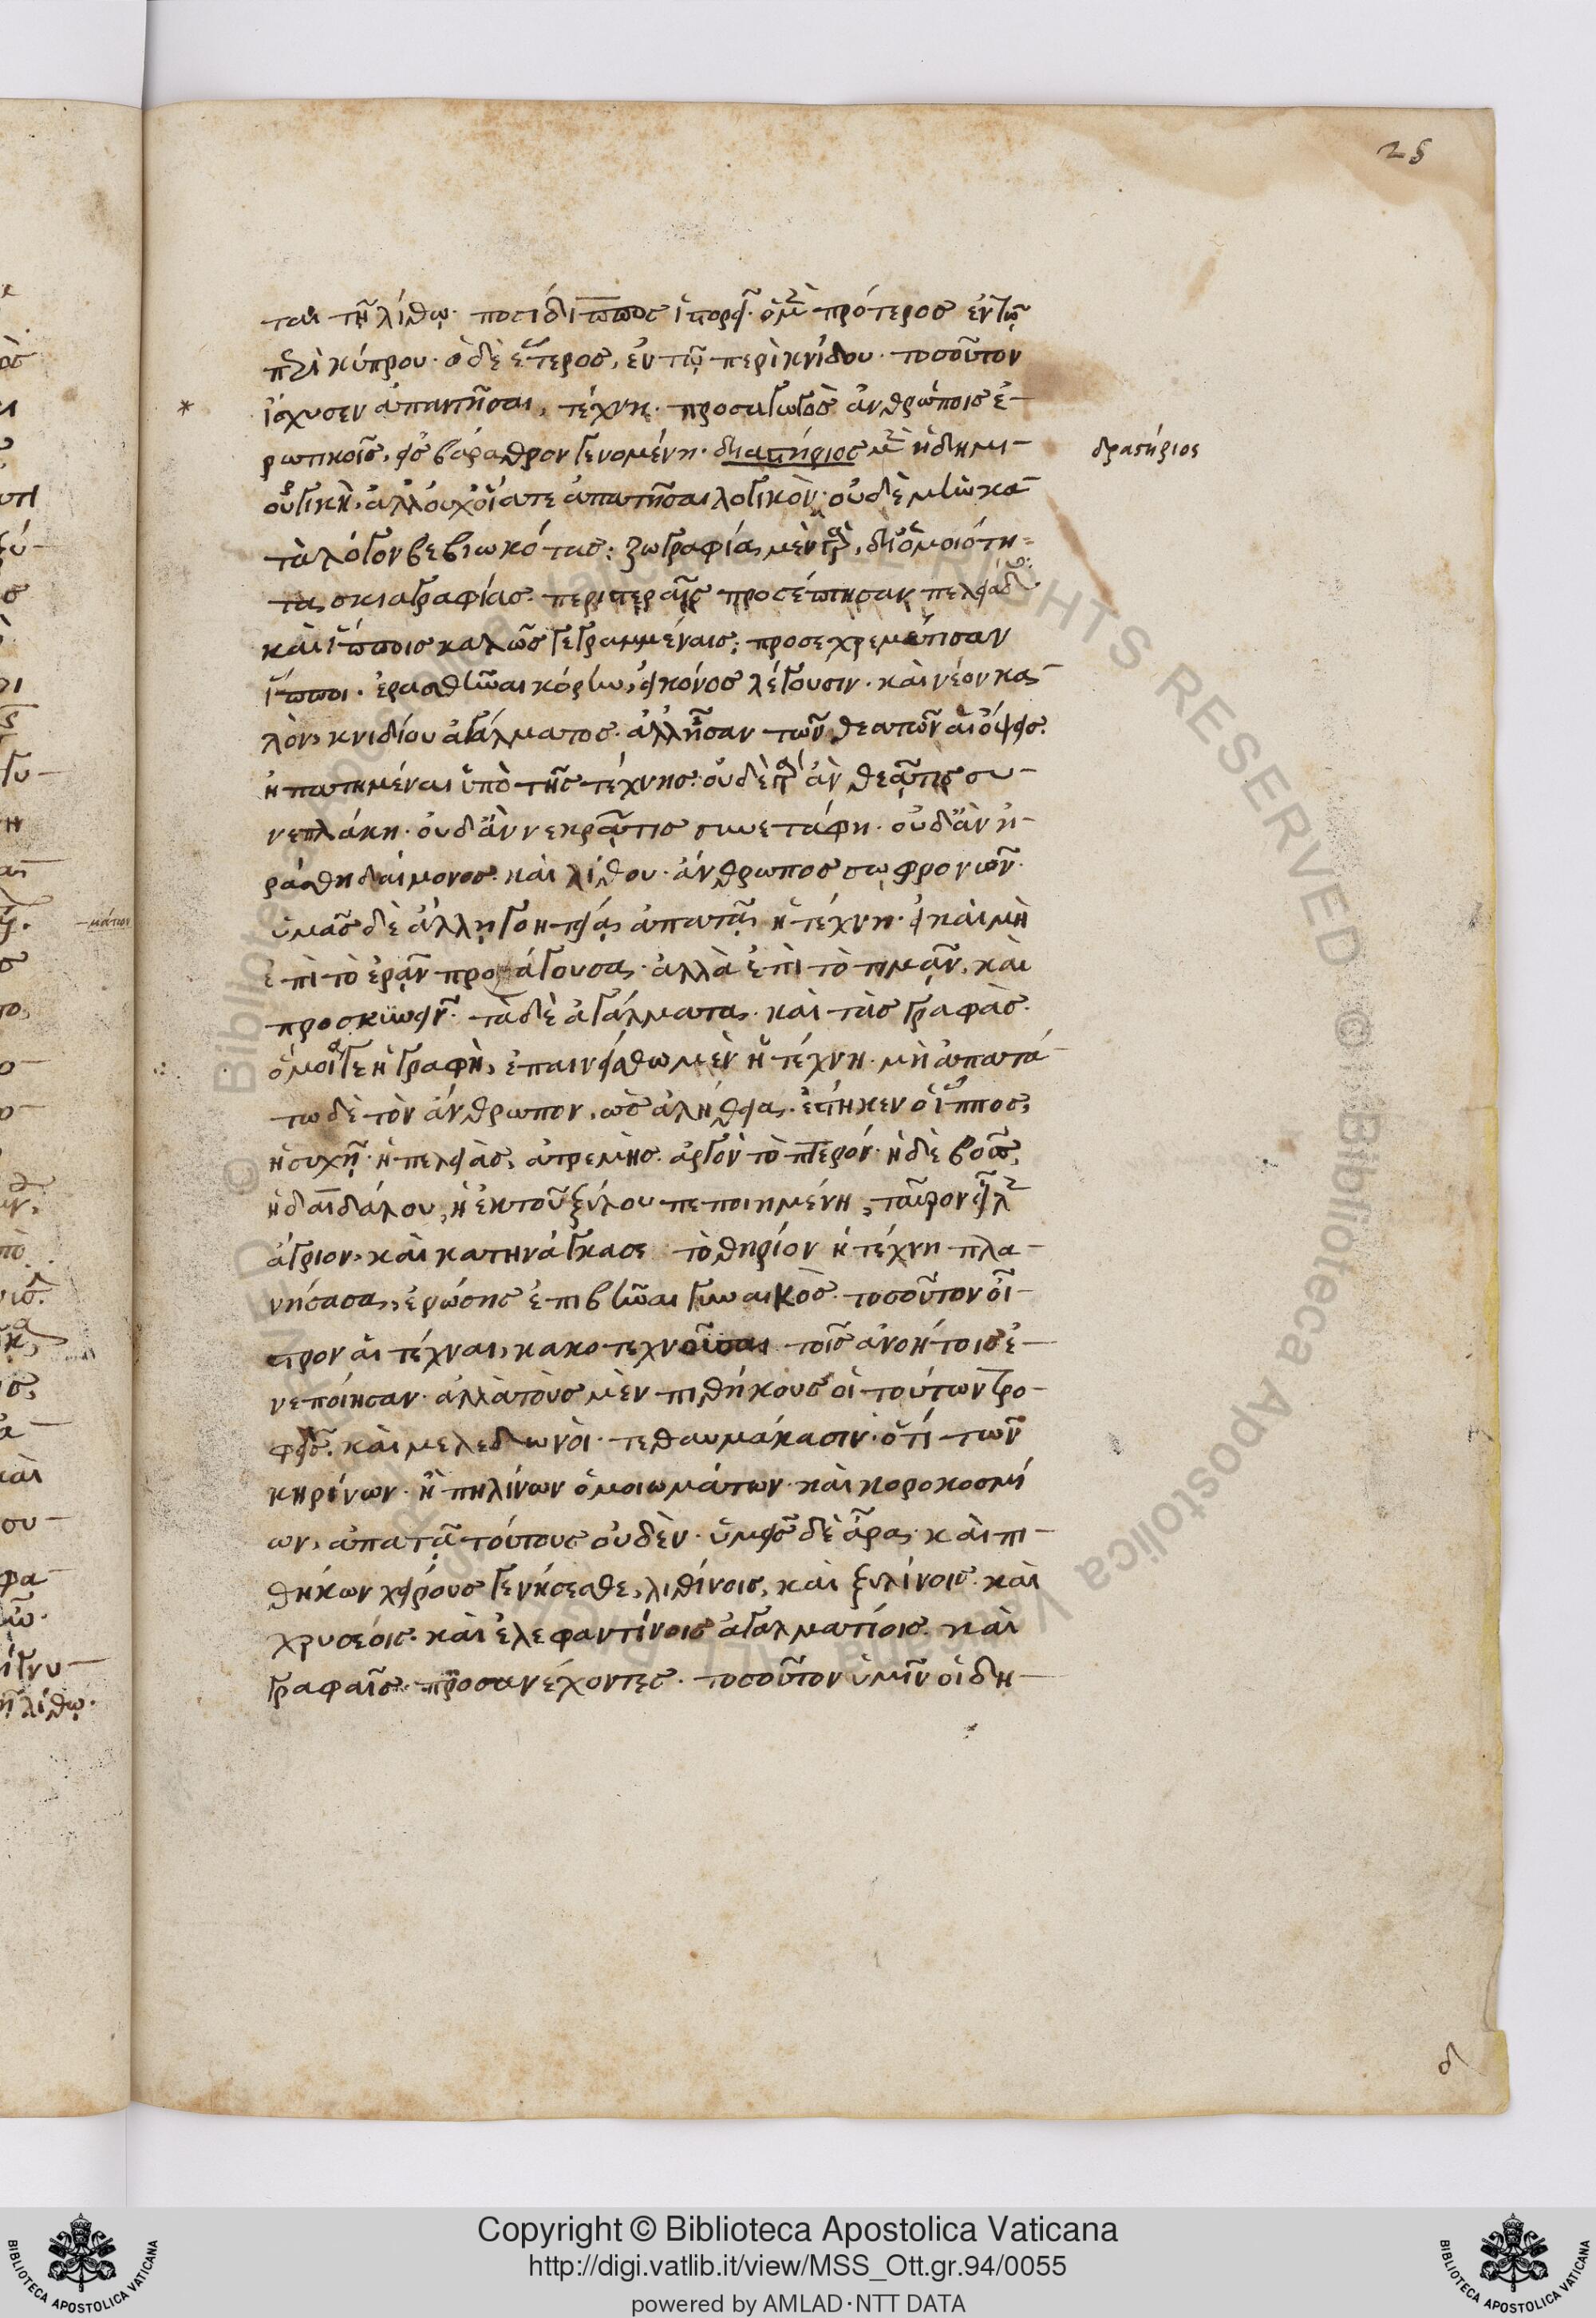 25
ται τῇ λίθῳ· ποσίδιππος ἱστορεῖ· ὁ μὲν πρότερος ἐν τῷ
περὶ κύπρου· ὁ δὲ ἕτερος, ἐν τῷ περὶ κνίδου· τοσοῦτον
* ἴσχυσεν ἀπατῆσαι, τέχνη· προαγωγὸς ἀνθρώποις ἐ-
ρωτικοῖς, εἰς βάραθρον γενομένη· διαστήριος μὲν ἡ δημι-
δραστήριος
ουργικὴ, ἀλλ οὐχ οἵα τε ἀπατῆσαι λογικὸν· οὐδὲ μὴν κα-
τὰ λόγον βεβιωκότας: ζωγραφίας μὲν γὰρ, δι ὁμοιότη-
τα σκιαγραφίας· περιστεραῖς προσέπτησαν πελειάδες·
καὶ ἵπποις καλῶς γεγραμμέναις; προσεχρεμέτισαν
ἵπποι· ἐρασθῆναι κόρην, εἰκόνος λέγουσιν· καὶ νέον κα-
λὸν, κνιδίου ἀγάλματος· ἀλλ ἦσαν τῶν θεατῶν αἱ ὄψεις·
ἠπατημέναι ὑπὸ τῆς τέχνης· οὐδὲ γὰρ ἂν θεᾷ τις συ-
νεπλάκη· οὐδ ἂν νεκρᾷ τις συνετάφη· οὐδ ἂν ἠ-
ράσθη δαίμονος· καὶ λίθου· ἄνθρωπος σωφρονῶν·
ὑμᾶς δὲ ἄλλῃ γοητείᾳ ἀπατᾷ ἡ τέχνη· εἰ καὶ μὴ
ἐπὶ τὸ ἐρᾶν προσάγουσα· ἀλλὰ ἐπὶ τὸ τιμᾶν, καὶ
προσκυνεῖν· τὰ δὲ ἀγάλματα· καὶ τὰς γραφὰς·
ὁμοία γε ἡ γραφὴ, ἐπαινείσθω μὲν ἡ τέχνη· μὴ ἀπατά
τω δὲ τὸν ἄνθρωπον, ὡς ἀλήθεια· ἕστηκεν ὁ ἵππος,
ἡσυχῇ· ἡ πελειὰς, ἀτρεμὴς· ἀργὸν τὸ πτερόν· ἡ δὲ βοῦς,
ἡ δαιδάλου, ἡ ἐκ τοῦ ξύλου πεποιημένη, ταῦρον εἷλεν
ἄγριον, καὶ κατηνάγκασε τὸ θηρίον ἡ τέχνη πλα-
νήσασα, ἐρώσης ἐπιβῆναι γυναικὸς· τοσοῦτον οἶ-
στρον αἱ τέχναι, κακοτεχνοῦσαι τοῖς ἀνοήτοις ἐ-
νεποίησαν· ἀλλὰ τοὺς μὲν πιθήκους οἱ τούτων τρο-
φεῖς· καὶ μελεδωνοὶ· τεθαυμάκασιν· ὅτι τῶν
κηρίνων· ἢ πηλίνων ὁμοιωμάτων· καὶ κοροκοσμί
ων, ἀπατᾷ τούτους οὐδὲν· ὑμεῖς δὲ ἄρα· καὶ πι-
θήκων χείρους γενήσεσθε, λιθίνοις, καὶ ξυλίνοις· καὶ
χρυσέοις· καὶ ἐλεφαντίνοις ἀγαλματίοις· καὶ
γραφαῖς· προσανέχοντες· τοσοῦτον ὑμῖν οἱ δη-
Copyright © Biblioteca Apostolica Vaticana
http://digi.vatlib.it/view/MSS_Ott.gr.94/0055
powered by AMLAD·NTT DATA